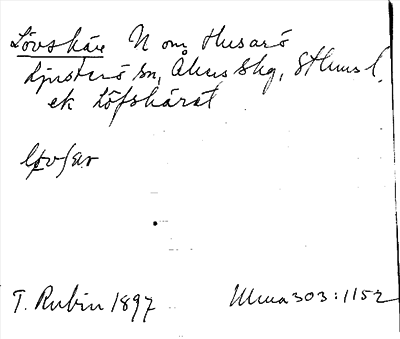 Lövskär N om Husarö
Ljusterö sn, Åkers skg, Sthlms l.
ek Löfskärat
T. Rubin 1897 Muua 303:1152